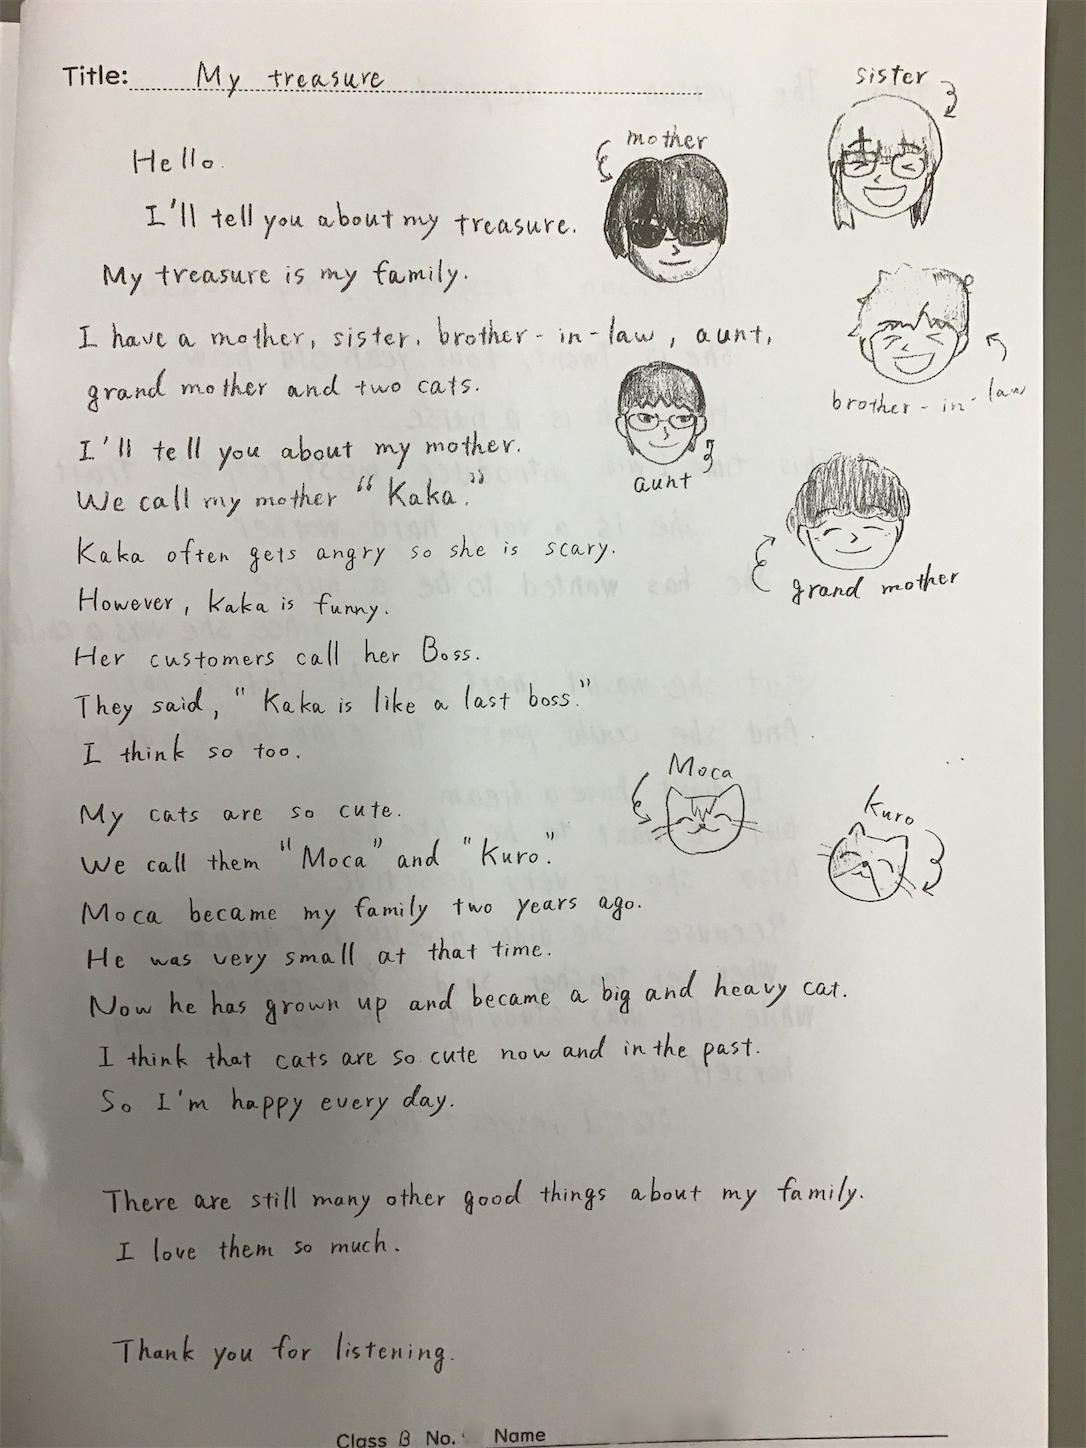 Title: My treasure
sister
mother
Hello.
I'll tell you about my treasure.
My treasure is my family.
I have a mother, sister, brother-in-law, aunt,
grand mother and two cats.
brother-in-law
I'll tell you about my mother.
aunt
We call my mother "Kaka."
Kaka often gets angry so she is scary.
grand mother
However, Kaka is funny.
Her customers call her Boss.
They said, "Kaka is like a last boss."
I think so too.
Moca
My cats are so cute.
Kuro
We call them "Moca" and "Kuro."
Moca became my family two years ago.
He was very small at that time.
Now he has grown up and became a big and heavy cat.
I think that cats are so cute now and in the past.
So I'm happy every day.
There are still many other good things about my family.
I love them so much.
Thank you for listening.
Class B No. Name